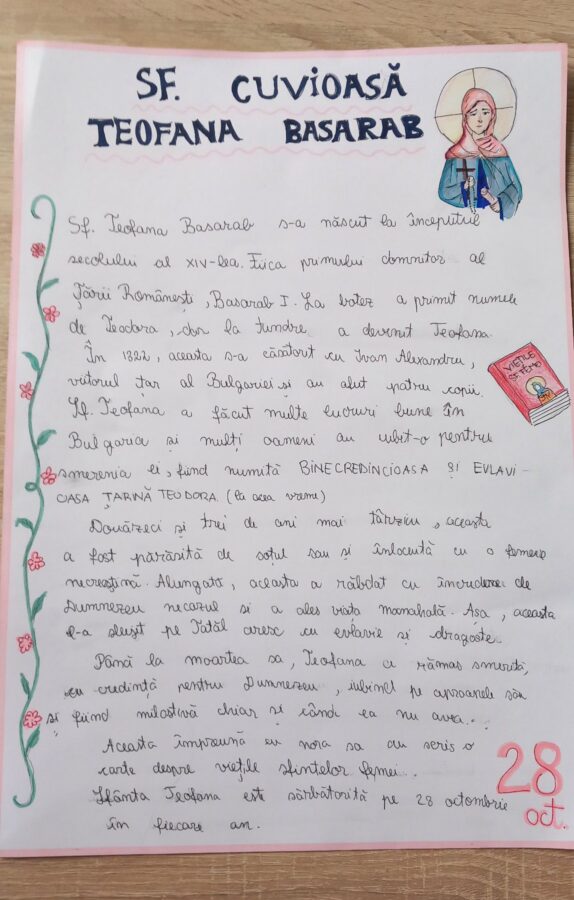 SF. CUVIOASĂ
TEOFANA BASARAB
Sf. Teofana Basarab s-a născut la începutul
secolului al XIV-lea. Fiica primului domnitor al
Țării Românești, Basarab I. La botez a primit numele
de Teodora, dar la tundre a devenit Teofana.
În 1322, aceasta s-a căsătorit cu Ivan Alexandru,
viitorul țar al Bulgariei și au avut patru copii.
Sf. Teofana a făcut multe lucruri bune în
Bulgaria și mulți oameni au iubit-o pentru
smerenia ei, fiind numită BINECREDINCIOASA ȘI EVLAVI-
OASA ȚARINĂ TEODORA. (la acea vreme)
Douăzeci și trei de ani mai târziu, aceasta
a fost părăsită de soțul sau și înlocuită cu o femeie
necreștină. Alungată, aceasta a răbdat cu încredere de
Dumnezeu necazul si a ales viața monahală. Așa, aceasta
l-a slujit pe Tatăl ceresc cu evlavie și dragoste.
Până la moartea sa, Teofana a rămas smerită,
cu credință pentru Dumnezeu, iubind pe aproapele său
și fiind milostivă chiar și când ea nu avea.
Aceasta împreună cu nora sa au scris o
carte despre viețile sfintelor femei.
Sfânta Teofana este sărbătorită pe 28 octombrie
în fiecare an.
VIEȚILE
SF. FEMEI
28
oct.